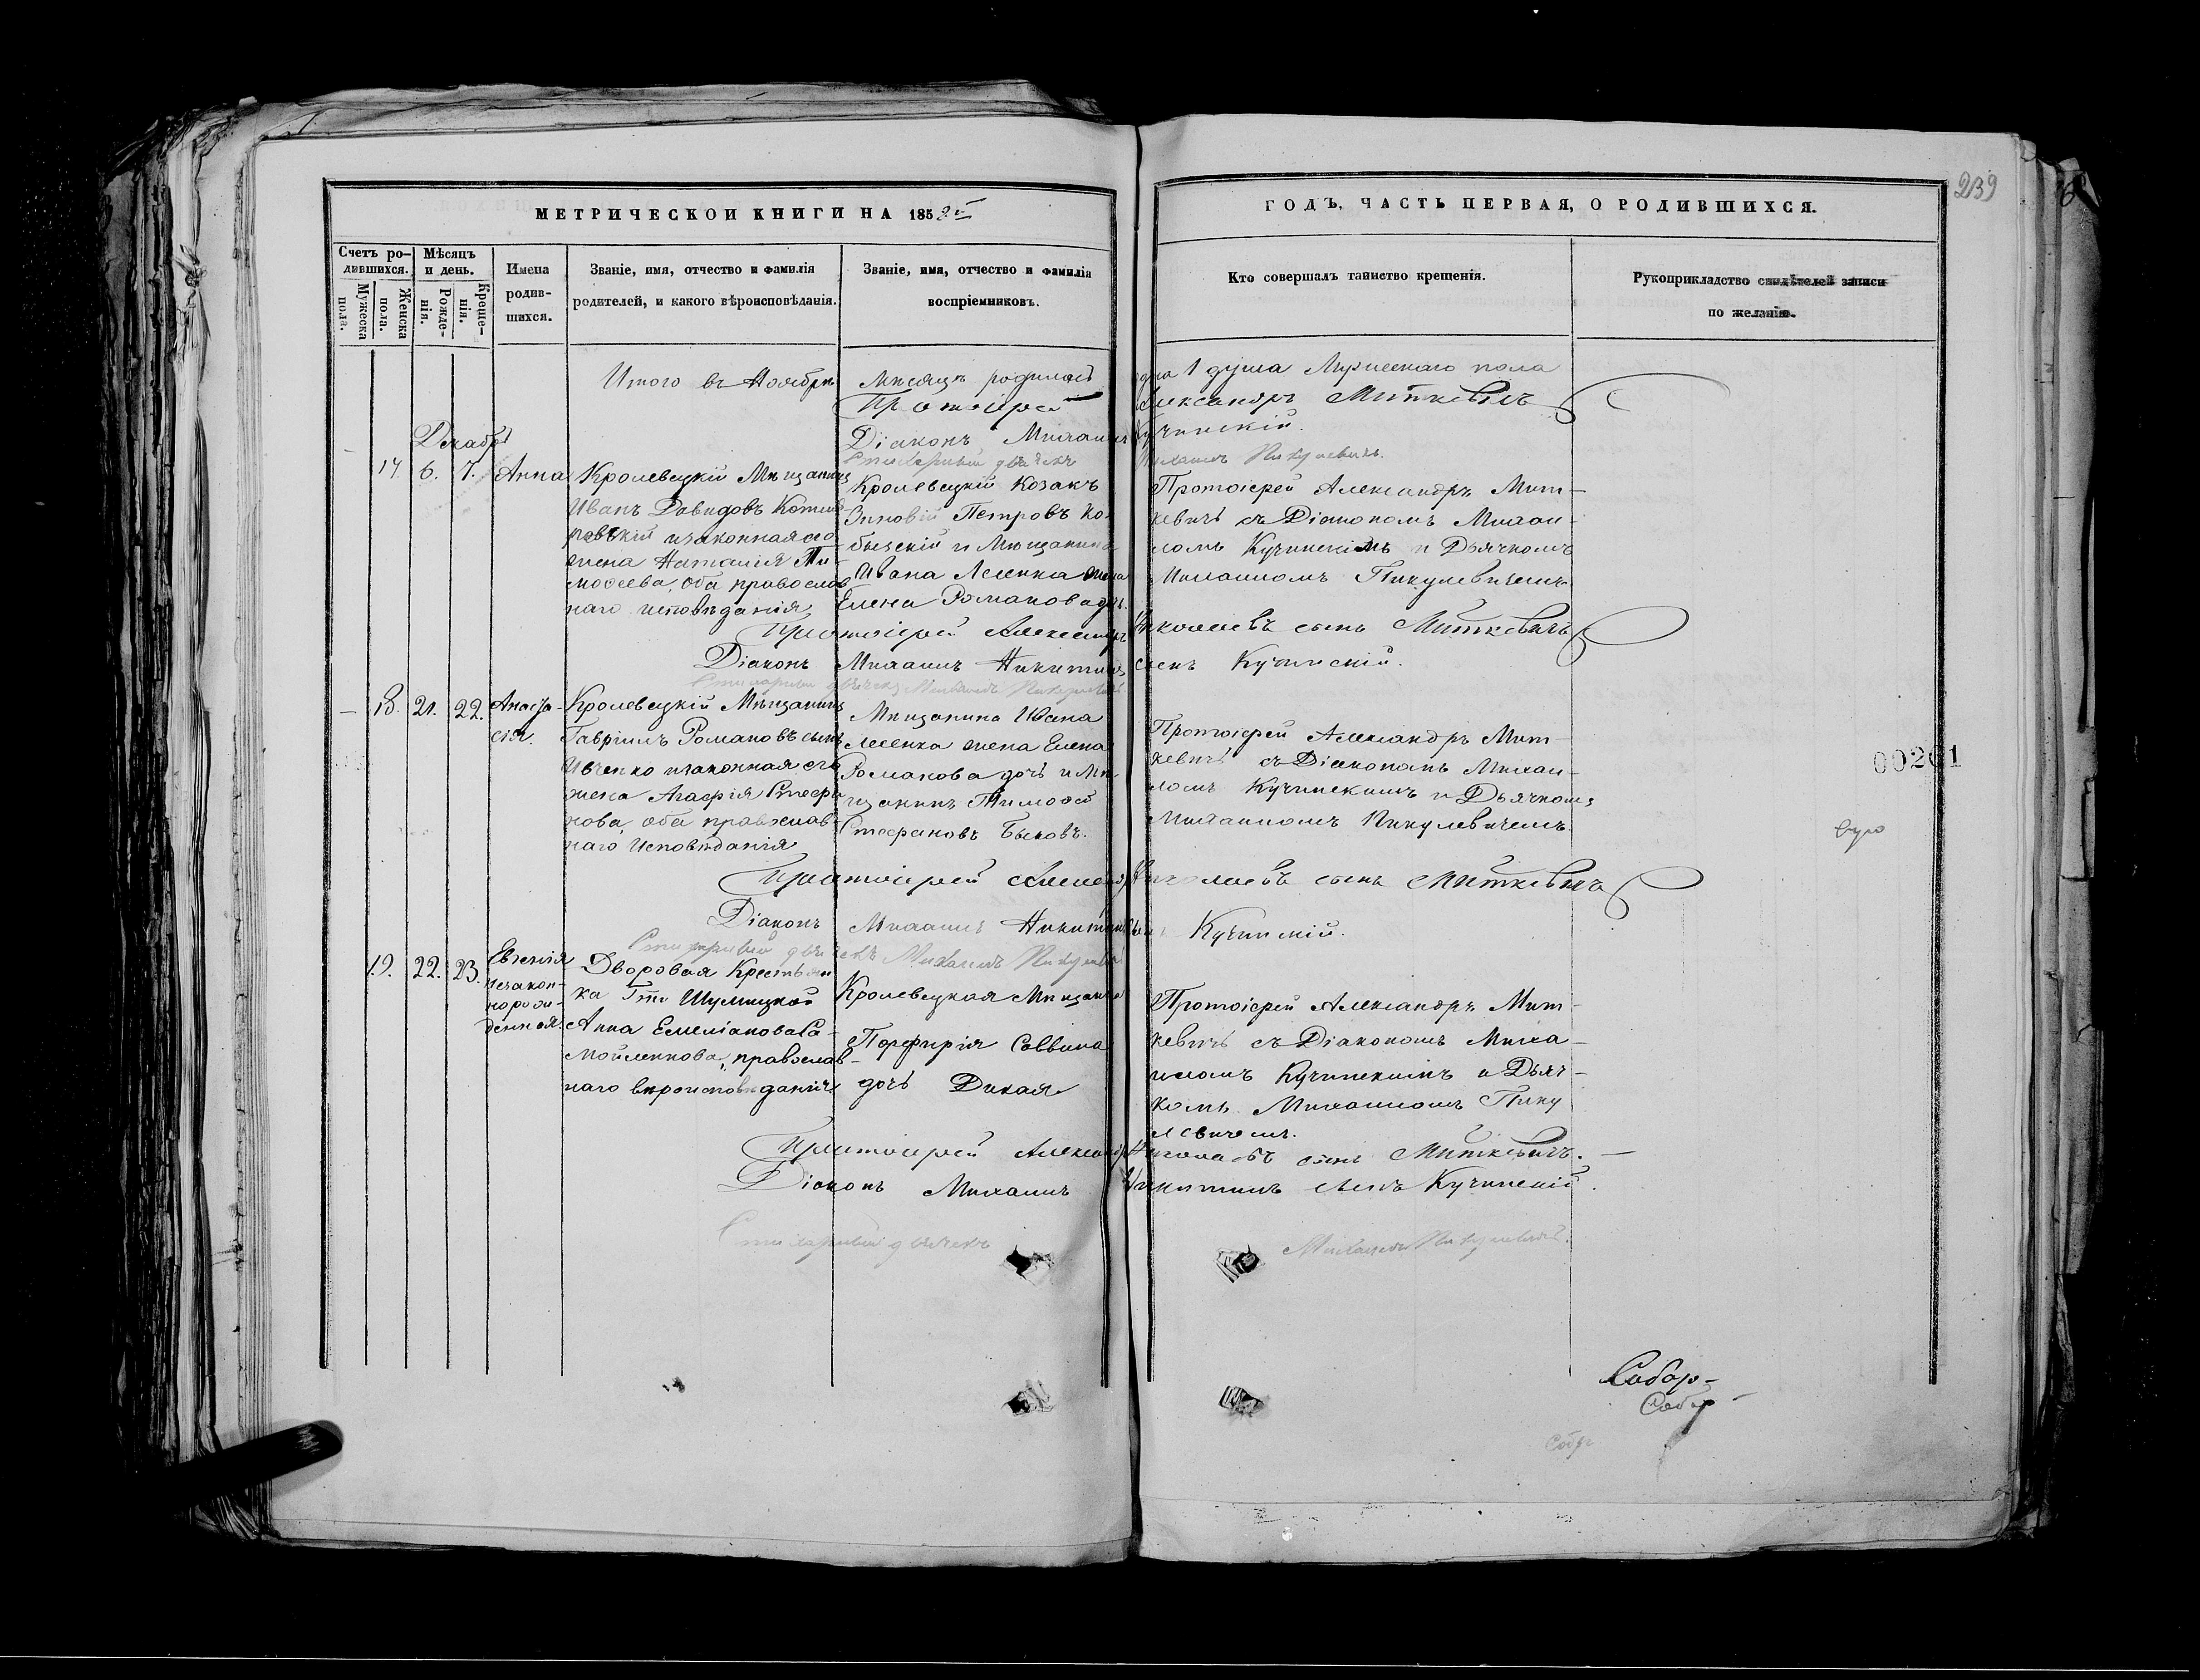 239
МЕТРИЧЕСКОЙ КНИГИ НА 185
ГОДЪ, ЧАСТЬ ПЕРВАЯ, О РОДИВШИХСЯ.
Счетъ ро-
дившихся.
Мужеска
пола.
Женска
пола.
Мѣсяцъ
и день.
Рожде-
нія.
Креще-
нія.
Имена
родив-
шихся.
Званіе, имя, отчество и фамилія
родителей, и какого вѣроисповѣданія.
Званіе, имя, отчество и фамилія
воспріемниковъ.
Кто совершалъ таинство крещенія.
Рукоприкладство свидѣтелей записи
по желанію.
Итого въ Ноябрѣ мѣсяцѣ родилась одна 1 душа Мужескаго пола
Протоіерей Александръ Миткевичъ
Діаконъ Михаилъ Кучинскій.
Стихарный дьячекъ Михаилъ Пикулевичъ.
Декабрь
17 6. 7. Анна
Кролевецкій Мѣщанинъ
Иванъ Давидовъ
и законная его
жена Наталія Ти-
моѳеева, оба православ
наго исповѣданія
Кролевецкій Козакъ
Зиновій Петровъ Ко-
бызскій и Мѣщанина
Ивана Лесенка жена
Елена Романова дочь.
Протоіерей Александръ Мит-
кевичъ съ Діакономъ Михаи-
ломъ Кучинскимъ и Дьячкомъ
Михаиломъ Пикулевичемъ
Протоіерей Александръ Николаевъ сынъ Миткевичъ
Діаконъ Михаилъ Никитинъ сынъ Кучинскій.
Стихарный дьячекъ Михаилъ Пикулевичъ
— 18. 21. 22. Анаста-
сія.
Кролевецкій Мѣщанинъ
Гавріилъ Романовъ сынъ
Ивченко и законная его
жена Агафія Стефа
нова, оба православ-
наго Исповѣданія
Мѣщанина Ивана
Лесенка жена Елена
Романова дочь и Мѣ-
щанинъ Тимоѳей
Стефановъ Быковъ.
Протоіерей Александръ Мит-
кевичъ съ Діакономъ Михаи-
ломъ Кучинскимъ и Дьячкомъ
Михаиломъ Пикулевичемъ.
00201
Протоіерей Александръ Николаевъ сынъ Миткевичъ
Діаконъ Михаилъ Никитинъ сынъ Кучинскій.
Стихарный дьячекъ Михаилъ Пикулевичъ
19. 22. 23. Евгенія
незакон-
норож-
денная.
Дворовая Крестьян
ка Гжи Шумицкой
Анна Емеліанова Са-
мойленкова, православ-
наго вѣроисповѣданія
Кролевецкая Мѣщанка
Порфирія Саввина
дочь Дикая
Протоіерей Александръ Мит-
кевичъ съ Діакономъ Миха-
иломъ Кучинскимъ и Дьяч-
комъ Михаиломъ Пику
левичемъ.
Протоіерей Александръ Николаевъ сынъ Миткевичъ.
Діаконъ Михаилъ Никитинъ сынъ Кучинскій.
Стихарный дьячекъ Михаилъ Пикулевичъ.
Собор-
Собор